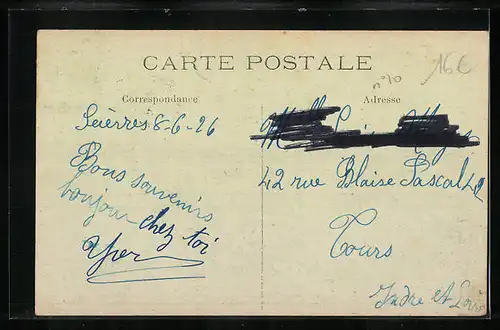 CARTE POSTALE
n°10
16€
Correspondance
Adresse
8-6-26
Bons souvenirs
toujours chez toi
42 rue Blaise Pascal 42
Tours
Indre et Loire